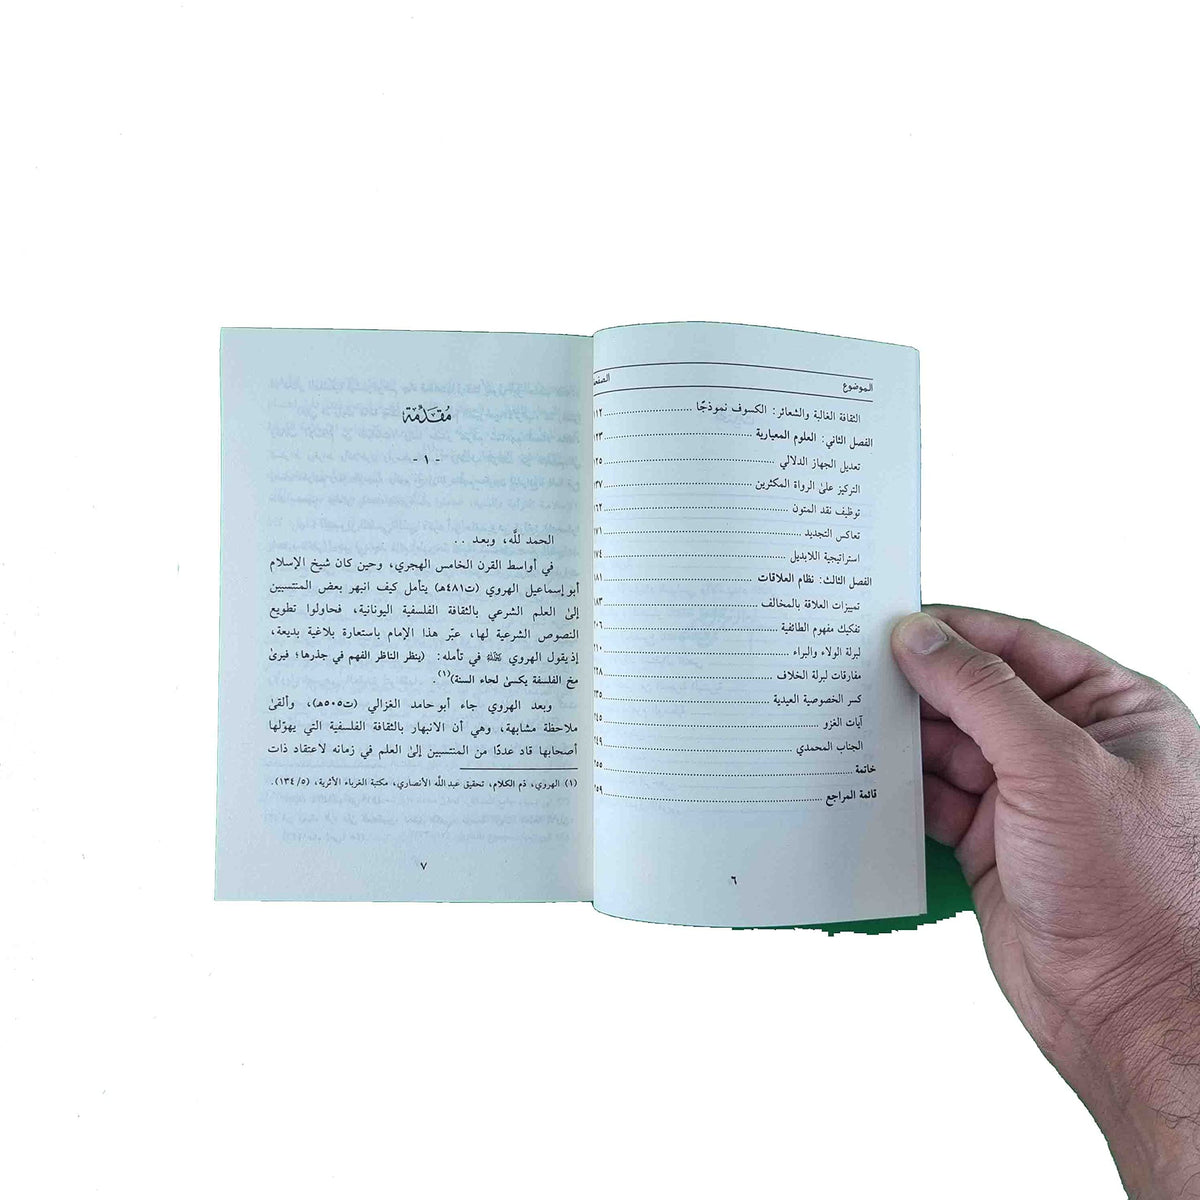 الموضوع الصفحة
الثقافة الغالبة والشعائر: الكسوف نموذجًا ........ ١١٢
الفصل الثاني: العلوم المعيارية ........ ١٢٣
تعديل الجهاز الدلالي ........ ١٢٥
التركيز على الرواة المكثرين ........ ١٣٧
توظيف نقد المتون ........ ١٦٢
تعاكس التجديد ........ ١٧١
استراتيجية اللابديل ........ ١٧٤
الفصل الثالث: نظام العلاقات ........ ١٨١
تمييزات العلاقة بالمخالف ........ ١٨٣
تفكيك مفهوم الطائفية ........ ٢٠٦
لبرلة الولاء والبراء ........ ٢١٠
مفارقات لبرلة الخلاف ........ ٢٢٨
كسر الخصوصية العيدية ........ ٢٣٥
آيات الغزو ........ ٢٤٥
الجناب المحمدي ........ ٢٤٩
خاتمة ........ ٢٥٥
قائمة المراجع ........ ٢٥٩
٦
مُقَدِّمَة
- ١ -
الحمد للَّه، وبعد ..
في أواسط القرن الخامس الهجري، وحين كان شيخ الإسلام
أبو إسماعيل الهروي (ت٤٨١هـ) يتأمل كيف انبهر بعض المنتسبين
إلى العلم الشرعي بالثقافة الفلسفية اليونانية، فحاولوا تطويع
النصوص الشرعية لها، عبّر هذا الإمام باستعارة بلاغية بديعة،
إذ يقول الهروي ﷺ في تأمله: (ينظر الناظر الفهم في جذرها؛ فيرى
مخ الفلسفة يكسى لحاء السنة)(١).
وبعد الهروي جاء أبو حامد الغزالي (ت٥٠٥هـ)، وألقى
ملاحظة مشابهة، وهي أن الانبهار بالثقافة الفلسفية التي يهوّلها
أصحابها قاد عددًا من المنتسبين إلى العلم في زمانه لاعتقاد ذات
(١) الهروي، ذم الكلام، تحقيق عبد اللَّه الأنصاري، مكتبة الغرباء الأثرية، (١٣٤/٥).
٧